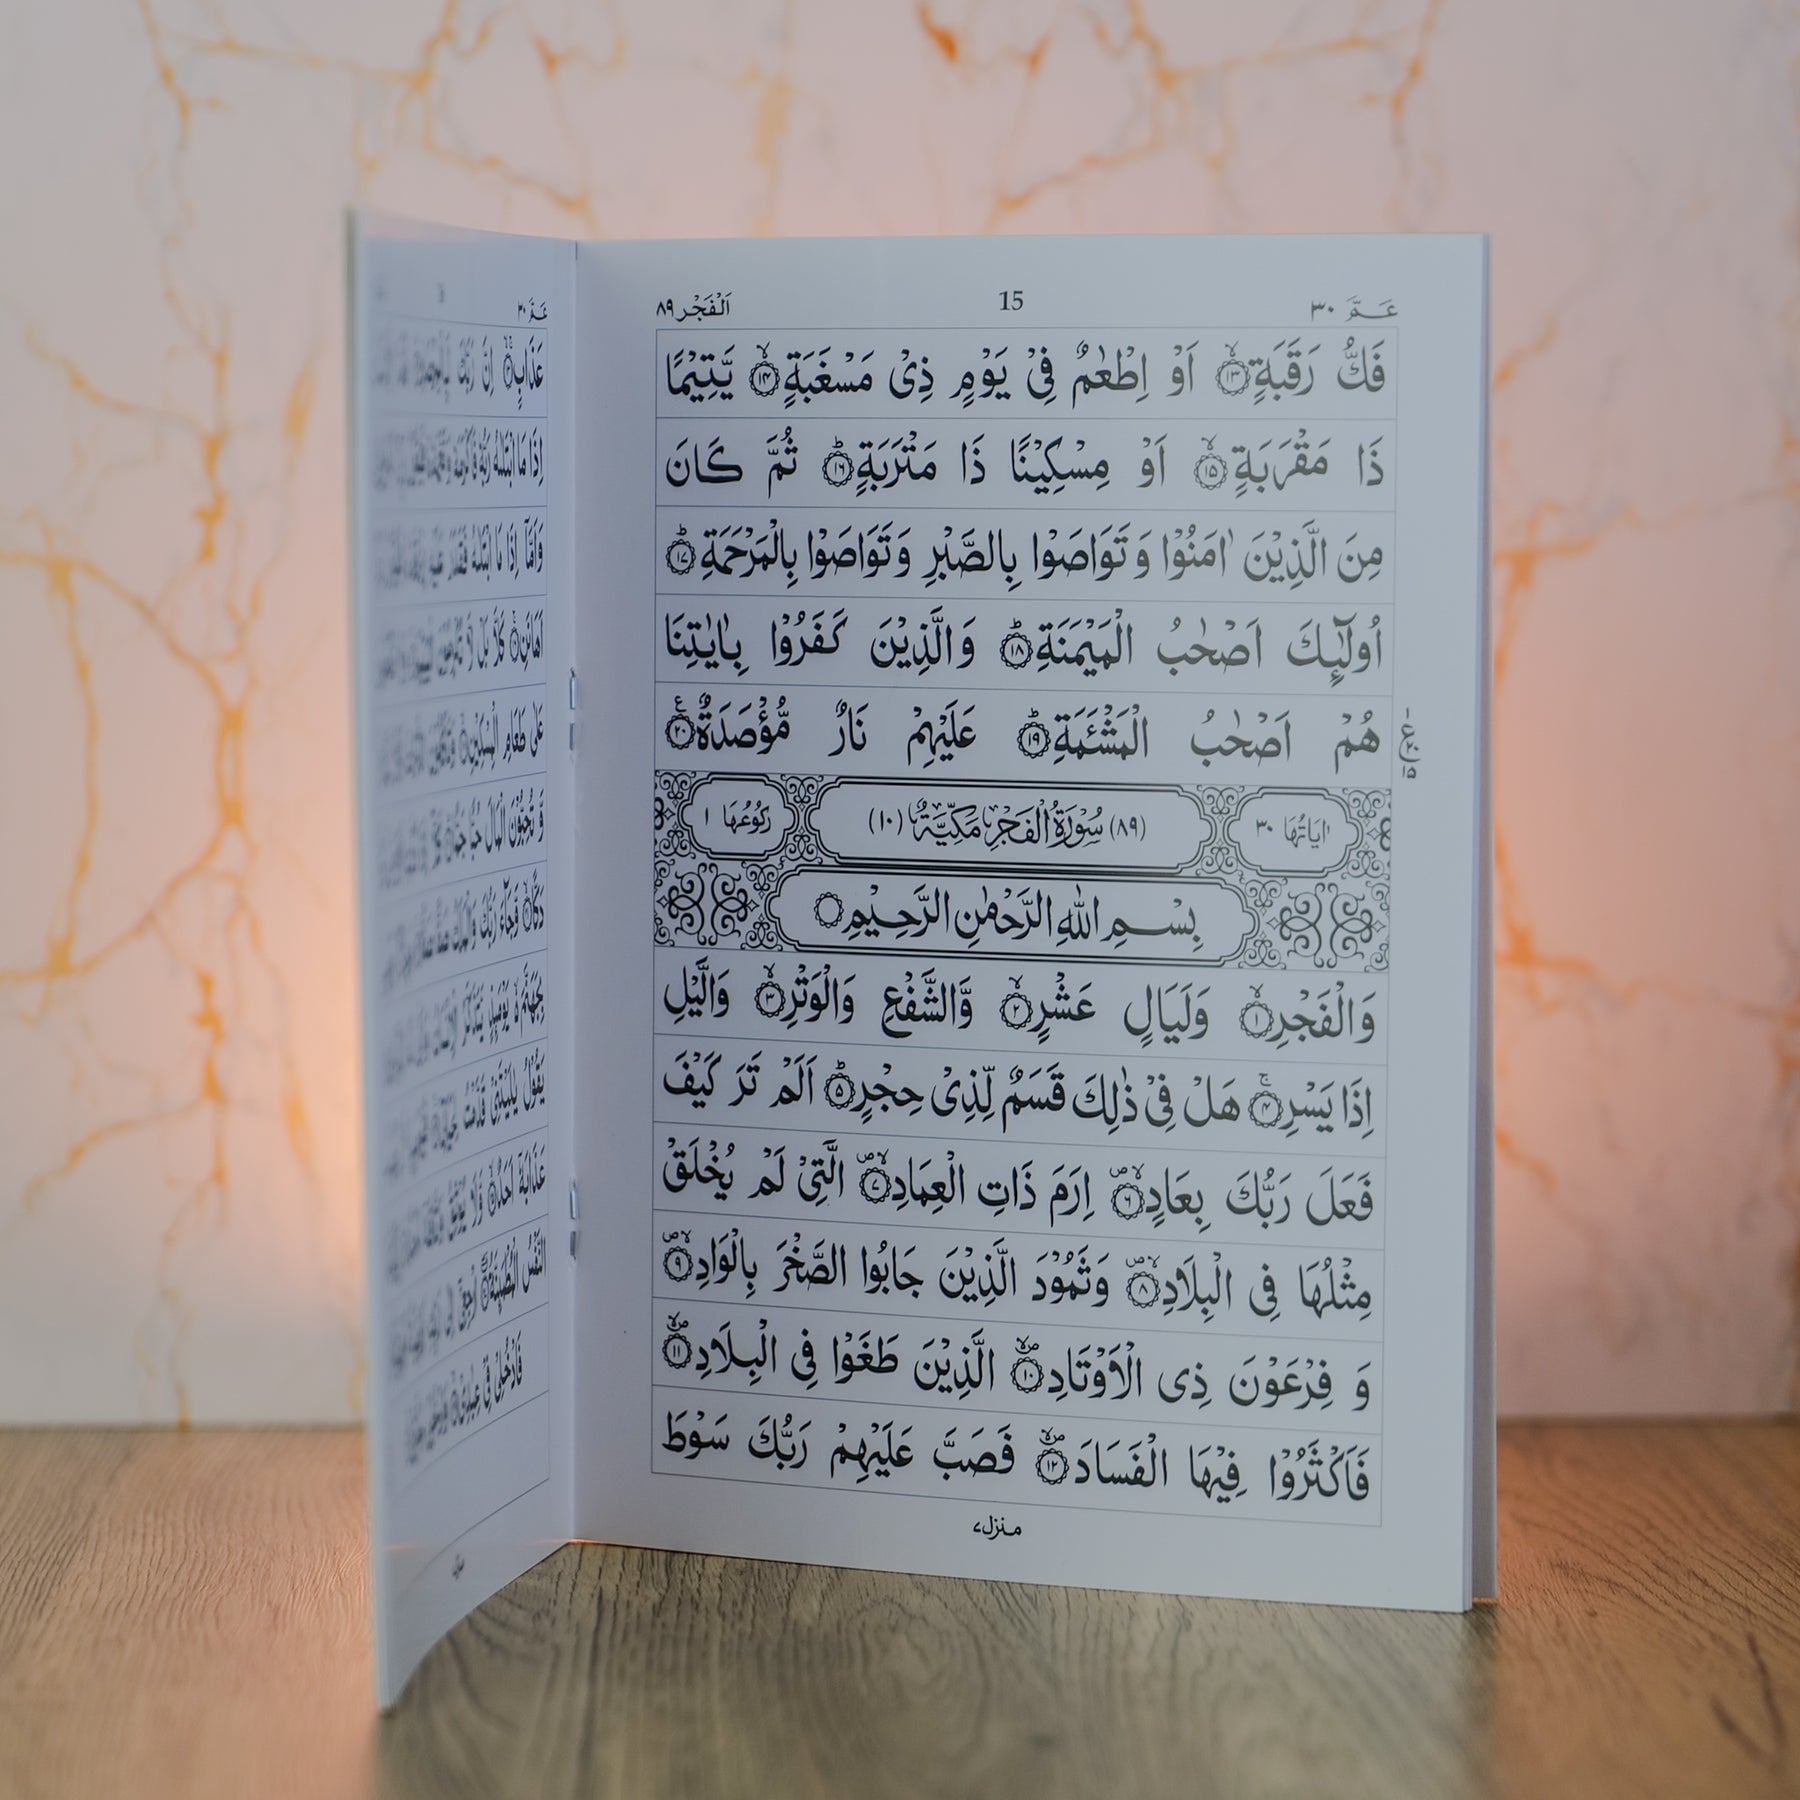 عَمَّ ۳۰
15
اَلْفَجْر ۸۹
فَكُّ رَقَبَةٍ ۙ‏﴿۱۳﴾ اَوْ اِطْعٰمٌ فِیْ یَوْمٍ ذِیْ مَسْغَبَةٍ ۙ‏﴿۱۴﴾ یَّتِیْمًا
ذَا مَقْرَبَةٍ ۙ‏﴿۱۵﴾ اَوْ مِسْكِیْنًا ذَا مَتْرَبَةٍ ؕ‏﴿۱۶﴾ ثُمَّ كَانَ
مِنَ الَّذِیْنَ اٰمَنُوْا وَ تَوَاصَوْا بِالصَّبْرِ وَ تَوَاصَوْا بِالْمَرْحَمَةِ ؕ‏﴿۱۷﴾
اُولٰٓىِٕكَ اَصْحٰبُ الْمَیْمَنَةِ ؕ‏﴿۱۸﴾ وَ الَّذِیْنَ كَفَرُوْا بِاٰیٰتِنَا
هُمْ اَصْحٰبُ الْمَشْـَٔمَةِ ؕ‏﴿۱۹﴾ عَلَیْهِمْ نَارٌ مُّؤْصَدَةٌ ۠‏﴿۲۰﴾
اٰیَاتُهَا ۳۰ (۸۹) سُوْرَةُ الْفَجْرِ مَكِّیَّةٌ (۱۰) رُكُوْعُهَا ۱
بِسْمِ اللّٰهِ الرَّحْمٰنِ الرَّحِیْمِ
وَ الْفَجْرِ ۙ‏﴿۱﴾ وَ لَیَالٍ عَشْرٍ ۙ‏﴿۲﴾ وَّ الشَّفْعِ وَ الْوَتْرِ ۙ‏﴿۳﴾ وَ الَّیْلِ
اِذَا یَسْرِ ۚ‏﴿۴﴾ هَلْ فِیْ ذٰلِكَ قَسَمٌ لِّذِیْ حِجْرٍ ؕ‏﴿۵﴾ اَلَمْ تَرَ كَیْفَ
فَعَلَ رَبُّكَ بِعَادٍ ۪ۙ‏﴿۶﴾ اِرَمَ ذَاتِ الْعِمَادِ ۪ۙ‏﴿۷﴾ الَّتِیْ لَمْ یُخْلَقْ
مِثْلُهَا فِی الْبِلَادِ ۪ۙ‏﴿۸﴾ وَ ثَمُوْدَ الَّذِیْنَ جَابُوا الصَّخْرَ بِالْوَادِ ۪ۙ‏﴿۹﴾
وَ فِرْعَوْنَ ذِی الْاَوْتَادِ ۪ۙ‏﴿۱۰﴾ الَّذِیْنَ طَغَوْا فِی الْبِلَادِ ۪ۙ‏﴿۱۱﴾
فَاَكْثَرُوْا فِیْهَا الْفَسَادَ ۪ۙ‏﴿۱۲﴾ فَصَبَّ عَلَیْهِمْ رَبُّكَ سَوْطَ
منزل ۷
عَمَّ ۳۰
عَذَابٍ اِنَّ رَبَّكَ
اِذَا مَا ابْتَلٰىهُ رَبُّهٗ
وَ اَمَّاۤ اِذَا مَا ابْتَلٰىهُ فَقَدَرَ
اَهَانَنِ كَلَّا بَلْ لَّا
عَلٰی طَعَامِ الْمِسْكِیْنِ
وَّ تُحِبُّوْنَ الْمَالَ حُبًّا
دَكًّا وَّ جَآءَ رَبُّكَ وَ الْمَلَكُ
بِجَهَنَّمَ یَوْمَىِٕذٍ یَّتَذَكَّرُ
یَقُوْلُ یٰلَیْتَنِیْ قَدَّمْتُ
عَذَابَهٗۤ اَحَدٌ وَّ لَا یُوْثِقُ
النَّفْسُ الْمُطْمَىِٕنَّةُ ارْجِعِیْۤ
فَادْخُلِیْ فِیْ عِبٰدِیْ